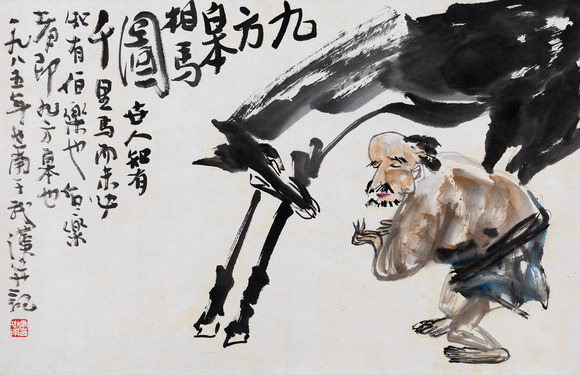 九方皋相馬圖
世人知有
千里馬而未必
知有伯樂也伯樂
者即九方皋也
一九八五年世南于武漢並記